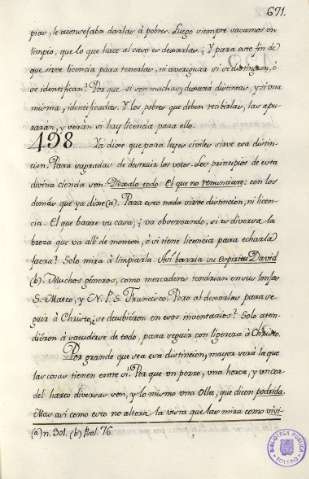 671.
pias, le aconsejaba darlas à pobres. Luego siempre vacamos en
limpio, que lo que hace al caso es dexarlas. Y para este fin de
que sirve licencia para tenerlas, ni averiguar si se distinguen, ó
se identifican? Por que si son muchas, dexará distintas, y si una
misma, identificadas. Y los pobres que deban recibirlas, las apu-
raran, y verán si hay licencia para ello.
498 Ya dixe que para leyes civiles sirve esa distin-
cion. Para sagradas de desnuir los votos. Los principios de esta
divina ciencia son: Dexalo todo: El que no renunciare: con los
demás que ya dixe (a). Para esto nada sirve distincion, ni licen-
cia. El que barre su casa, va observando, si es diversa la
broza que va allí de monton, ó si tiene licencia para echarla
fuera? Solo mira à limpiarla. Así barria su espiritu David
(b). Muchos géneros, como mercaderes tendrian en sus lonjas
S. Mateo, y N. P. S. Francisco. Pero al dexarlas para se-
guir à Christo, se descubrieron en esos inventarios? Solo aten-
dieron à sacudirse de todo, para seguir con ligereza à Christo.
Por grande que sea esa distincion, mayor será la que
las cosas tienen entre sí. Por que un poste, una horca, y un cor-
del harto diversas son, y lo mismo una Olla, que dicen podrida.
Mas así como esto no altera la vista que las mira como visi-
(a) n. 301. (b) Psal. 76.
BIBLIOTECA PUBLICA
TOLEDO